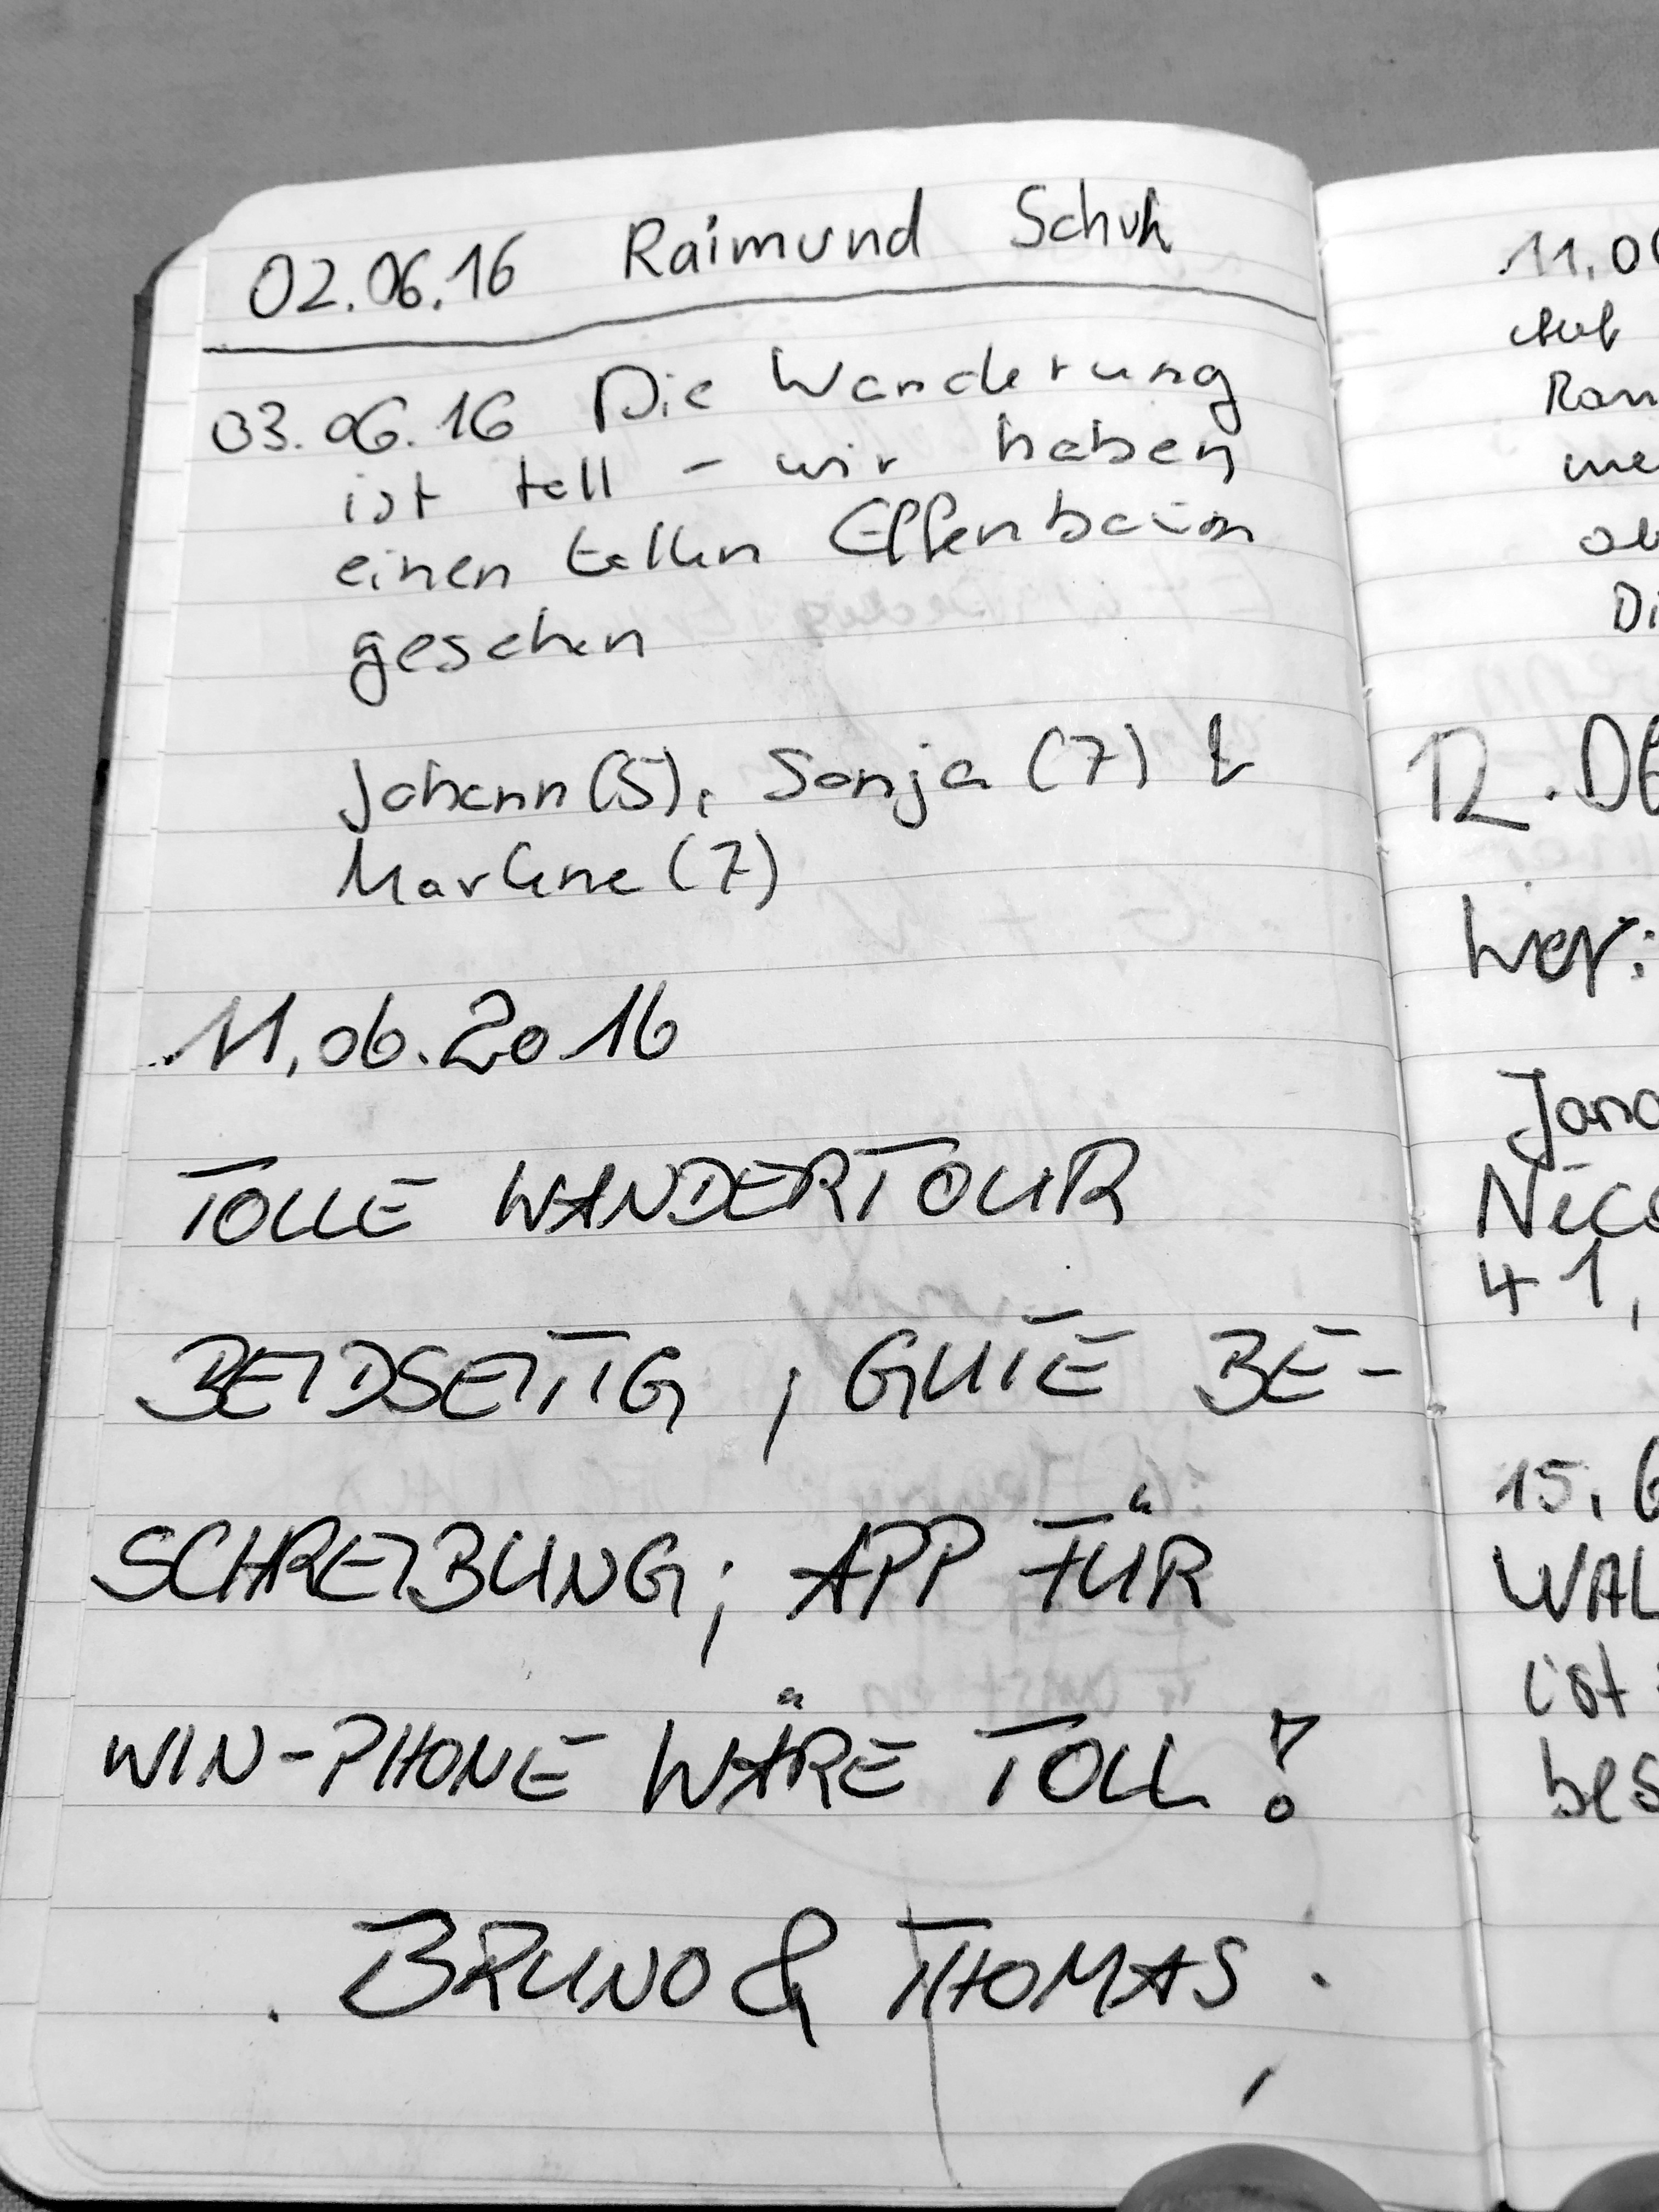 02.06.16 Raimund Schuh
03.06.16 Die Wanderung
ist toll - wir haben
einen tollen Elfenbaum
gesehen
Johann (5), Sonja (7) &
Marlene (7)
11.06.2016
TOLLE WANDERTOUR
BEIDSEITIG, GUTE BE-
SCHREIBUNG; APP FÜR
WIN-PHONE WÄRE TOLL!
BRUNO & THOMAS
11.06
Auf
Rom
me
ob
Di
12.06
Wer:
Jana
Nico
41,
15.6
WAL
ist
bes